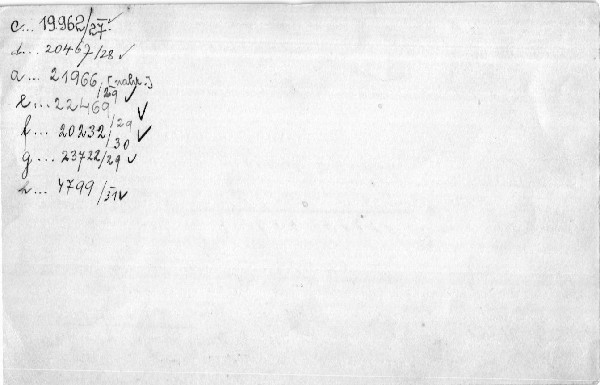 c... 19962/27 ✓
d... 20467/28 ✓
a... 21966/29 ✓
e... 22469/29 ✓
f... 20232/30 ✓
g... 23722/29 ✓
h... 4799/31 ✓